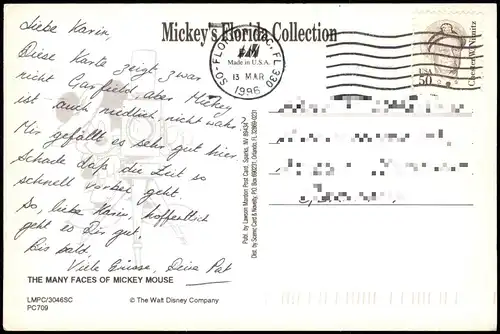 Mickey's Florida Collection
Liebe Karin,
Diese Karte zeigt zwar
nicht Garfield, aber Mickey
ist auch niedlich, nicht wahr?
Mir gefällt es sehr gut hier.
Schade daß die Zeit so
schnell vorbei geht.
So, liebe Karin, hoffentlich
geht es Dir gut.
Bis bald,
Viele Grüsse, Deine Pat
THE MANY FACES OF MICKEY MOUSE
LMPC/3046SC
PC709
© The Walt Disney Company
Publ. by Lawson Mardon Post Card, Sparks, NV 89434
Dist. by Scenic Card & Novelty, P.O. Box 690231, Orlando, FL 32869-0231
Made in U.S.A.
SO-FLORIDA FL 330
13 MAR
1996
USA
50
Chester W. Nimitz